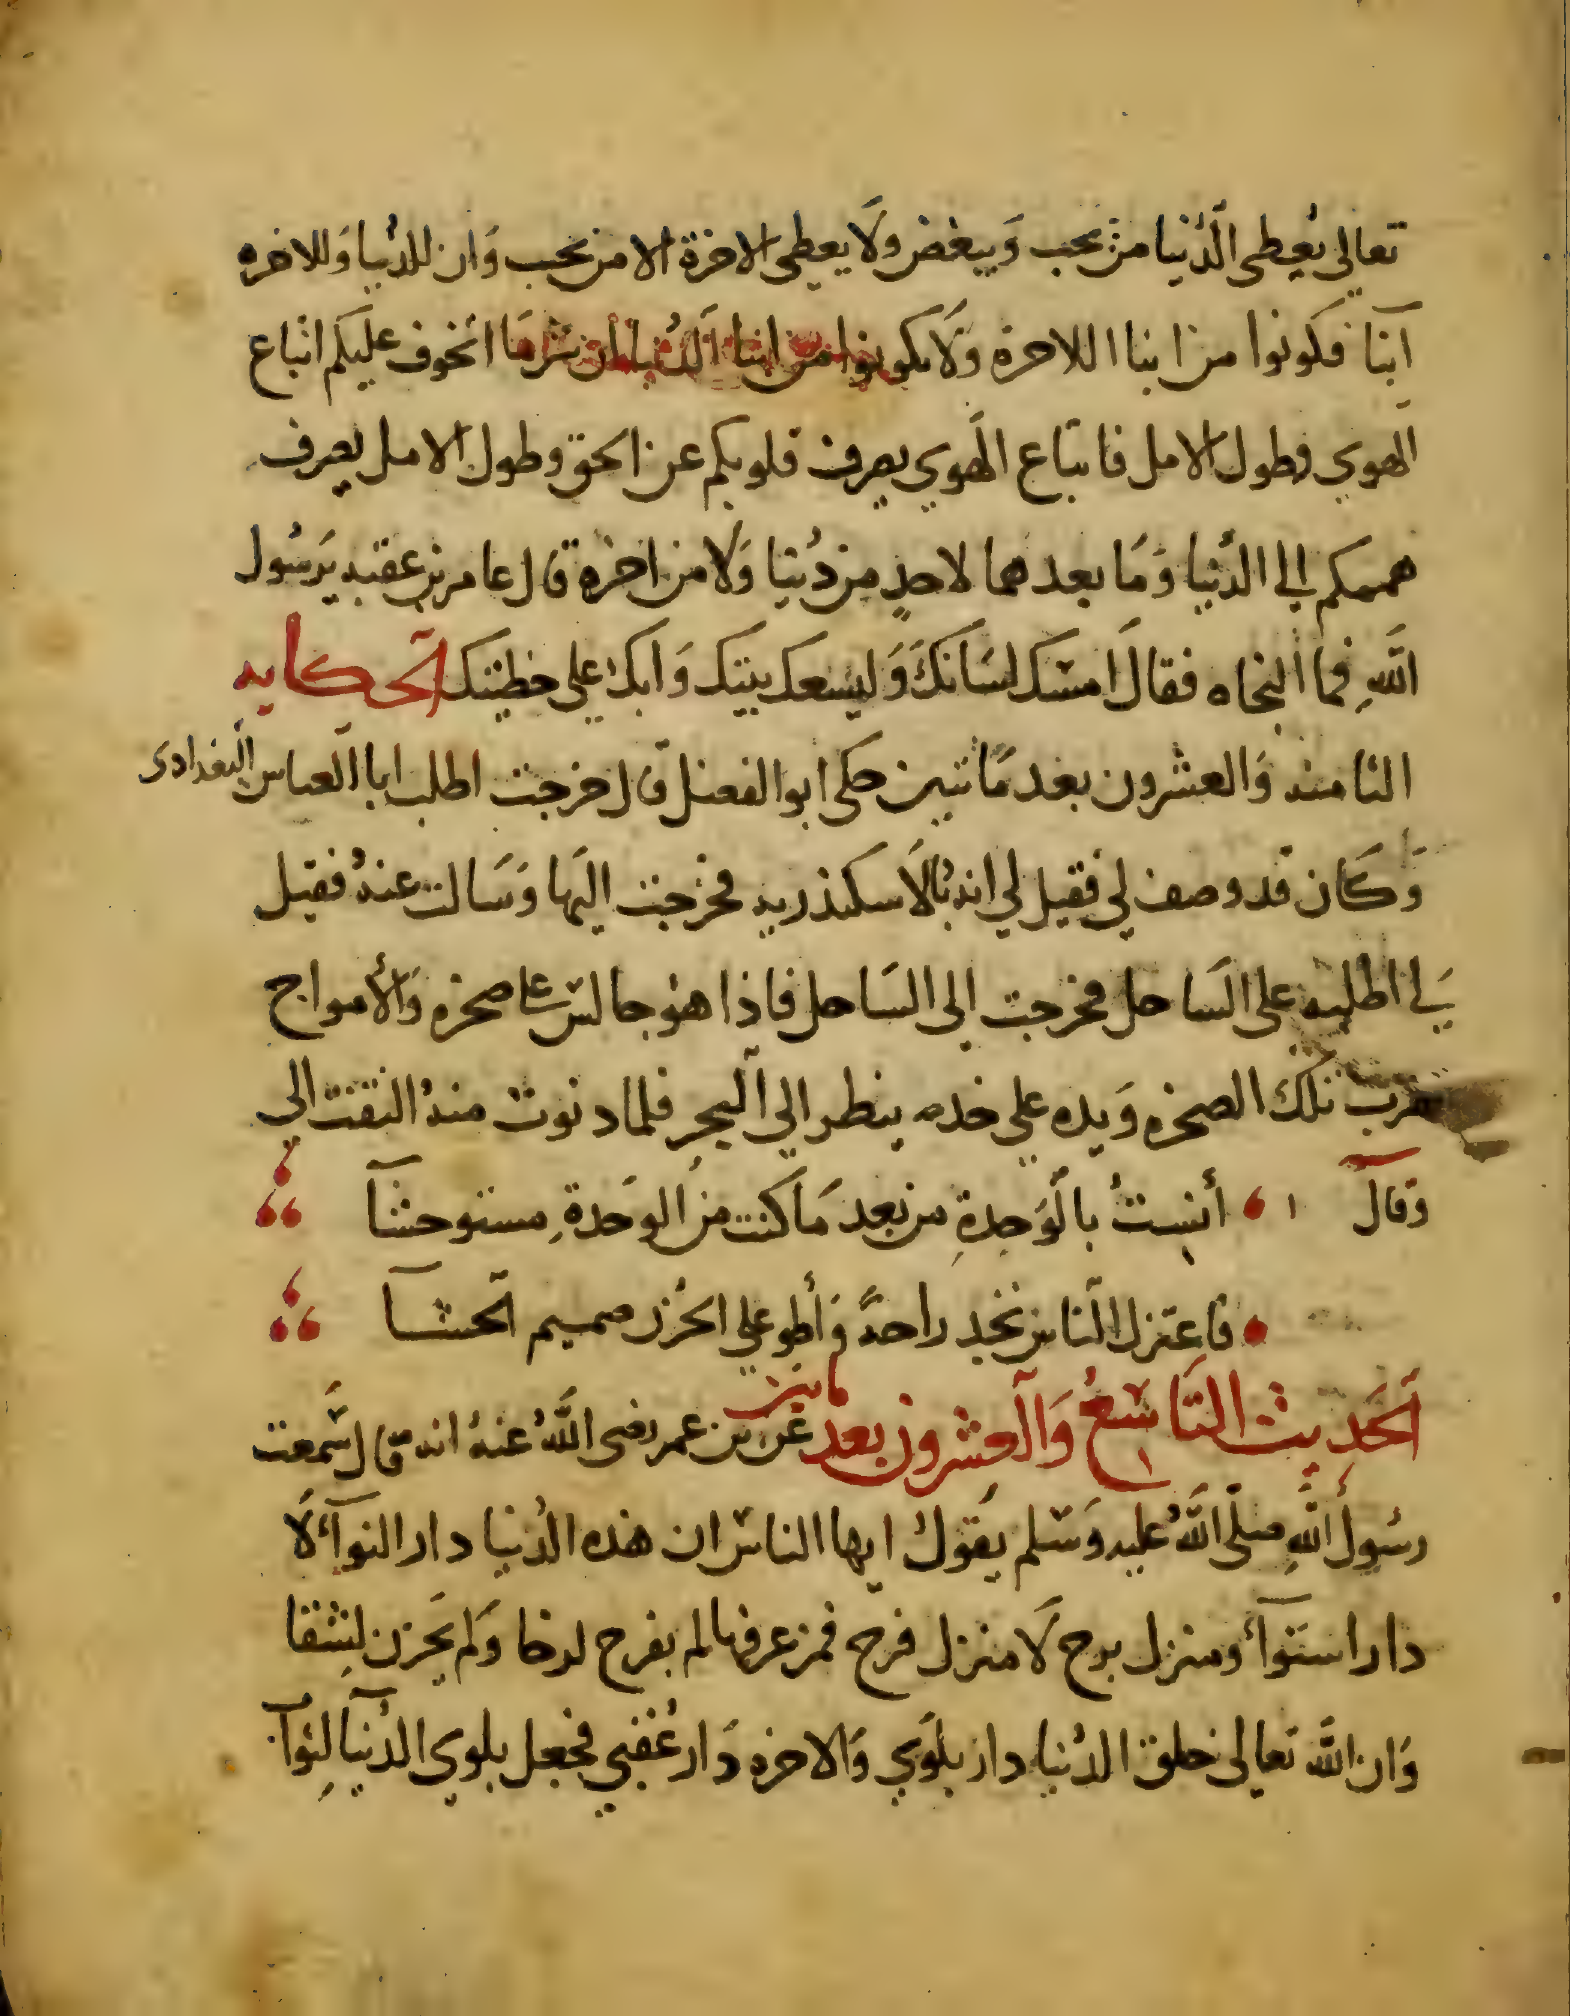 تعالي يُعطى الدُّنيا من يحب وَيبغض ولَا يعطى الاخرة الا من يحب وَان للدُنيا وَللاخره
آبنا فكونوا من ابنا اللاخرة وَلَا تكونوا من ابنا الدُنيا ان شر مَا اتخوف عليكم اتباع
الهوي وطول الامل فاتباع الهوي يصرف قلوبكم عن الحق وطول الامل يصرف
هممكم الي الدُنيا وَمَا بعدهما لاحدٍ من دُنيا وَلا من اخره قال عامر بن عقبه يَرسُول
اللَّهِ فما النجاه فقال اَمسك لسَانكَ وَليسعك بيتك وَابك علي خطيتك الحكايه
الثامنه وَالعشرون بعد مَاتين حكى ابوا الفضل قال خرجت اطلب ابا العباس البغدادى
وَكَان قد وصف لي فقيل لي انه بالَاسكندريه فخرجت اليَها وَسَالت عنهُ فقيل
لي اطلبه على السَاحل فخرجت الى السَاحل فاذا هو جالس على صخره وَالأمواج
تضرب تلك الصخره وَيده علي خده ينظر الي البحر فلما دنوت منهُ التفت الى
وَقال أنستُ بالوَحدةِ من بعد مَا كنت من الوَحدةِ مستوحشَا
فاعتزل الناس تجد راحةً وَأطو علي الحُزن صميم الحشا
اَلحَديث التَّاسعُ وَالعشرون بعد ماتين عن بن عمر رضى اللَّهُ عنهُ انه قال سَمعت
رسُول اللَّهِ صلّى اللَّهُ عليه وَسَلم يقول ايها الناس ان هذه الدُنيا دار التوآء لَا
دار استوآء ومنزل برح لَا منزل فرح فمن عرفها لم يفرح لرخا وَلم يَحزن لِشقا
وَان اللَّه تعالى خلق الدُنيا دار بلوَي وَالاخره دَار عُقبي فجعل بلوي الدُنيا لثوآب